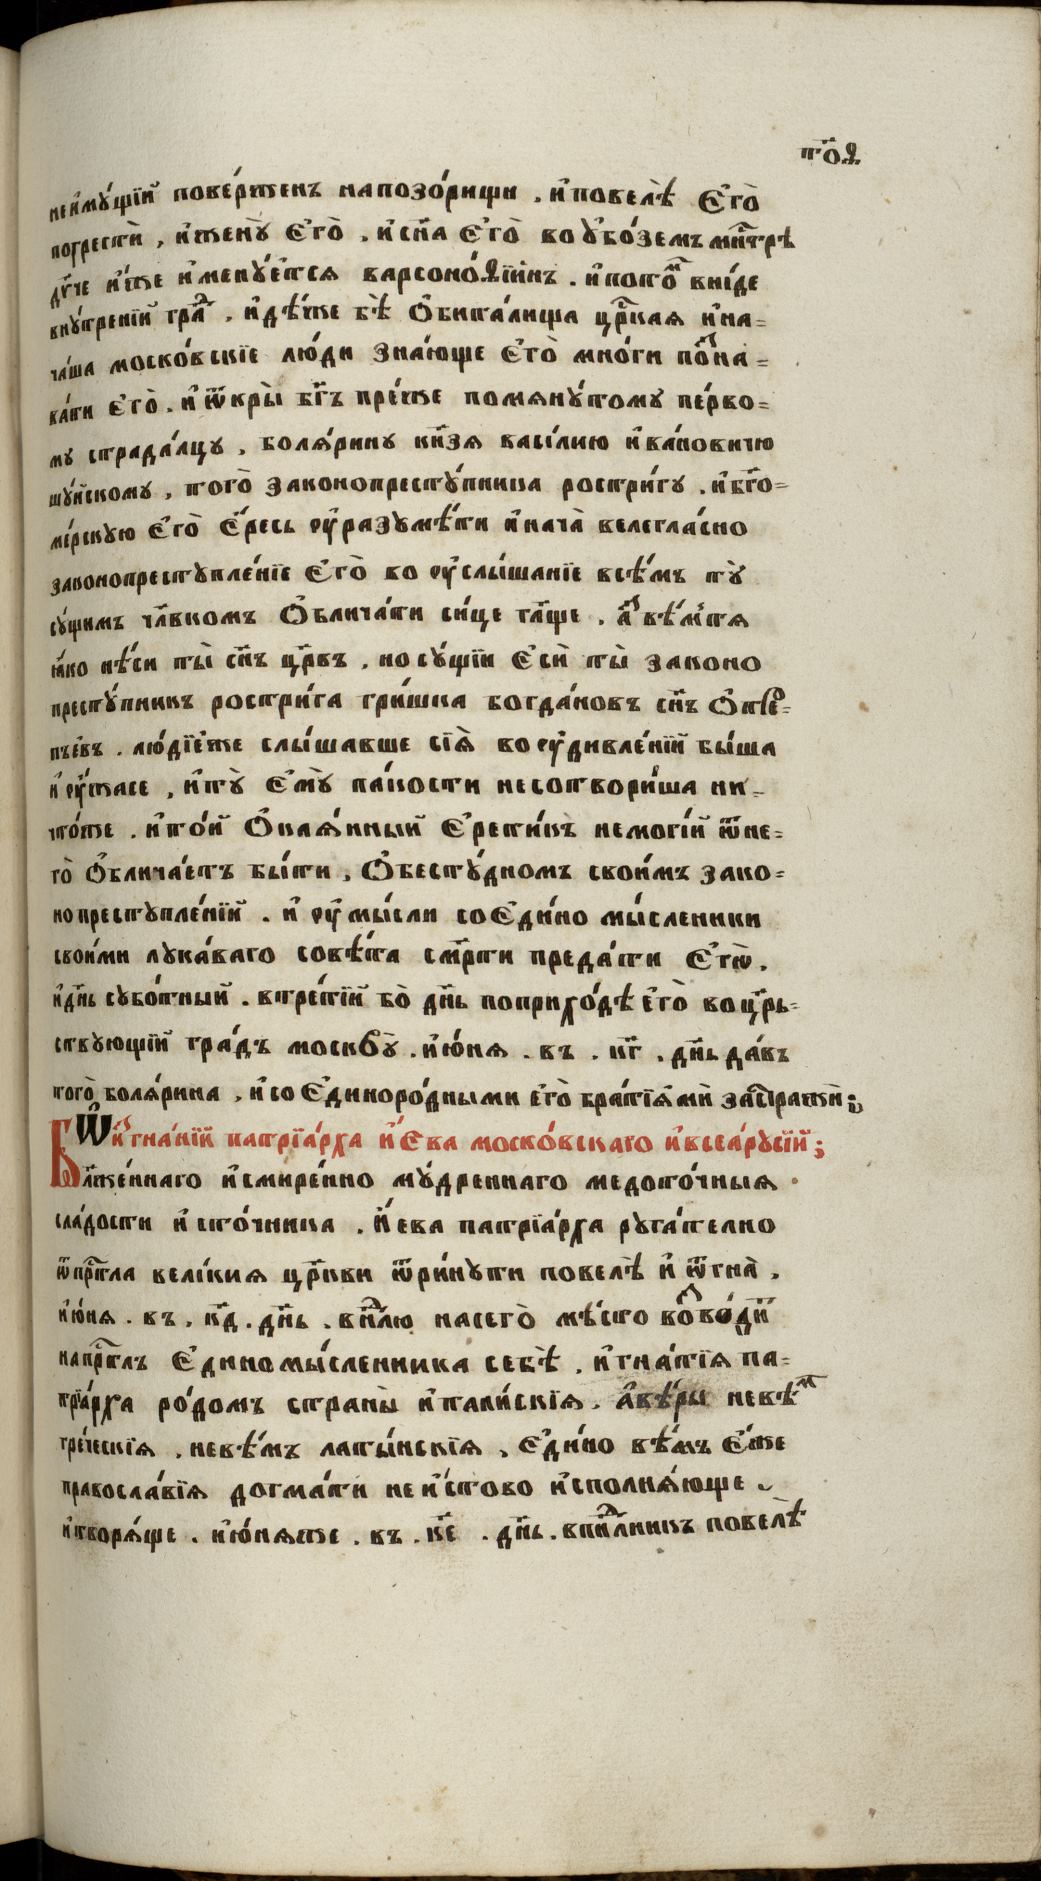 т҃ѳ҃
неи҆мꙋ́щїй пове́рженъ напозо́рищи . и҆повелѣ̀ є҆го̀
погрестѝ , и҆женꙋ̀ є҆го̀ , и҆ сн҃а є҆го̀ во ᲂу҆бо́земъ мн҃трѣ
дв҃че и҆́же и҆менꙋ́ется варсоно́ѳїинъ . и҆пото́м вни́де
внꙋ́трений гра́д , и҆дѣ́же бѣ̀ ѻ҆бита́лища цр҃кая и҆на-
ча́ша моско́вскїе лю́ди зна́юще є҆го̀ мно́ги по́лна-
ка́ти є҆го̀ . и҆ ѿкры̀ бг҃ъ пре́же помянꙋ́томꙋ пе́рво-
мꙋ страда́лцꙋ , боля́ринꙋ кн҃зя васи́лию и҆ва́новичю
шꙋ́йскомꙋ , того̀ законопрестꙋ́пника ростри́гꙋ . и҆ бг҃о-
ме́рскую є҆го̀ є҆́ресь ᲂу҆разꙋмѣ́ти и҆ нача̀ велегла́сно
законопрестꙋпле́нїе є҆го̀ во ᲂу҆слы́шанїе всѣ́мъ тꙋ̀
сꙋ́щимъ чл҃вкомъ ѻ҆блича́ти си́це гл҃ще . а҆́з вѣ́м тя
ꙗ҆́ко нѣ́си ты̀ сн҃ъ цр҃евъ , но сꙋ́щїи є҆сѝ ты̀ законо
престꙋ́пникъ ростри́га гри́шка богда́новъ сн҃ъ ѻ҆тре-
пьевъ . лю́дїеже слы́шавше сїѧ̀ во ᲂу҆дивле́нїй бы́ша
и҆ ᲂу҆́жасе , и҆тꙋ̀ є҆мꙋ̀ па́кости несотвори́ша ни-
что́же . и҆то́й ѻ҆кая́нный є҆рети́къ немоги́й ѿне-
го̀ ѻ҆блича́етъ бы́ти , ѻ҆бестꙋ́дномъ свои́мъ зако-
нопрестꙋпле́нїй . и҆ ᲂу҆мы́сли со є҆ди́но мы́сленики
свои́ми лꙋка́ваго совѣ́та см҃рти преда́ти є҆гѡ̀ .
и҆ дн҃ь сꙋбо́тный . втре́тїй бо̀ дн҃ь поприхо́дѣ є҆го̀ во цр҃ь-
ствꙋющїй гра́дъ москвꙋ̀ . и҆ю́ня . въ . к҃г . дн҃ь да́въ
того̀ боля́рина , и҆со є҆диноро́дными є҆го̀ бра́тїямѝ за стражѝ ;
Ѡ҆ и҆з̾гна́нїй патрїа́рха и҆́ева моско́вскаго и҆всеарꙋ́сїй ;
Бл҃же́ннаго и҆смире́нно мꙋ́дреннаго медото́чныя
сла́дости и҆ сто́чника . и҆́ева патрїа́рха рꙋга́телно
ѿпр҃тла вели́кия цр҃кви ѿри́нꙋти повелѣ̀ и҆ ѿгна̀ .
и҆ю́ня . въ . к҃д . дн҃ь . вн҃дѣлю насего̀ мѣ́сто во́зво́дит
напр҃тлъ є҆диномы́сленника себѣ̀ . и҆гна́тїя па-
трїа́рха ро́домъ страны̀ и҆тали́скїя . а҆вѣ́ры невѣ́м
гре́ческїя , невѣ́мъ латы́нскїя , є҆ди́но вѣ́мъ є҆́же
правосла́вїя догма́ти не и҆́стово и҆сполня́юще .
и҆творя́ще . и҆ю́няже . въ . к҃е . дн҃ь . впн҃дѣлникъ повелѣ̀